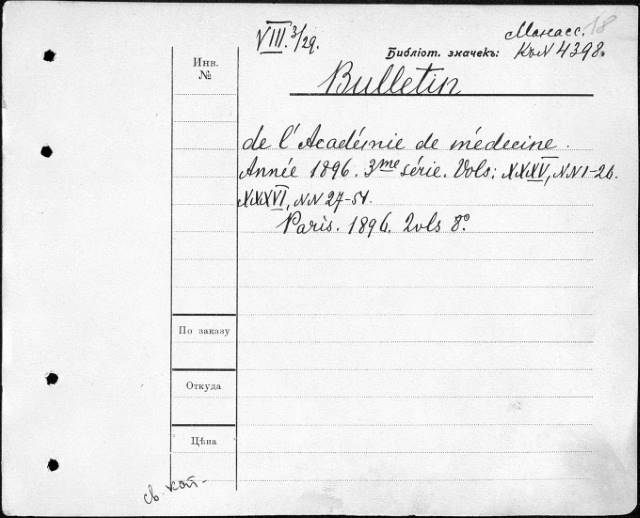 VIII. 3/29.
Манасс. 18
Библіот. значекъ: къ N 4398.
Инв.
№
Bulletin
de l'Académie de médecine.
Année 1896. 3me série. Vols: XXXV, NN 1-26.
XXXVI, NN 27-51.
Paris. 1896. 2vls 8°.
По заказу
Откуда
Цѣна
св. кат.